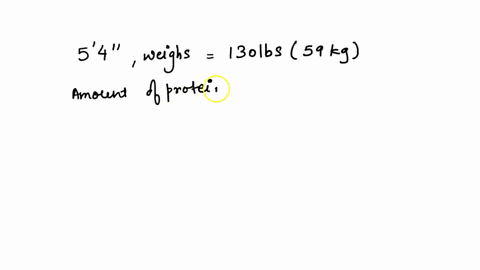 5'4", weighs = 130lbs (59kg)
Amount of protei